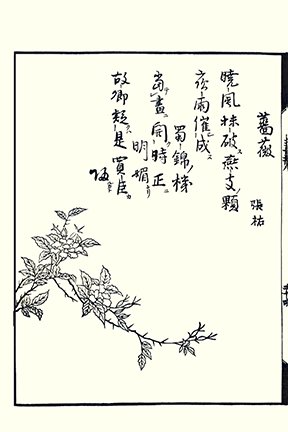 薔薇
張祐
曉風抹破燕支顆
夜雨催成
蜀錦機
當晝開時正
明媚
故鄉疑是買臣
歸